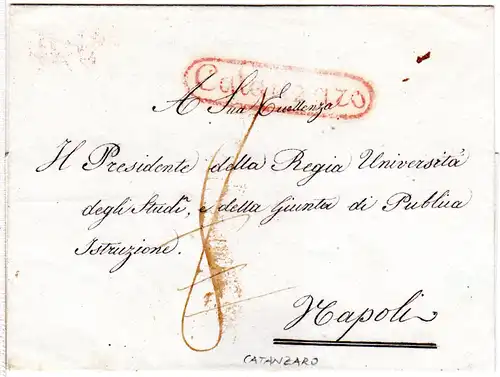 Catanzaro
A Sua Eccellenza
Il Presidente della Regia Università
degli Studî, e della Giunta di Publica
Istruzione.
8
Napoli
CATANZARO